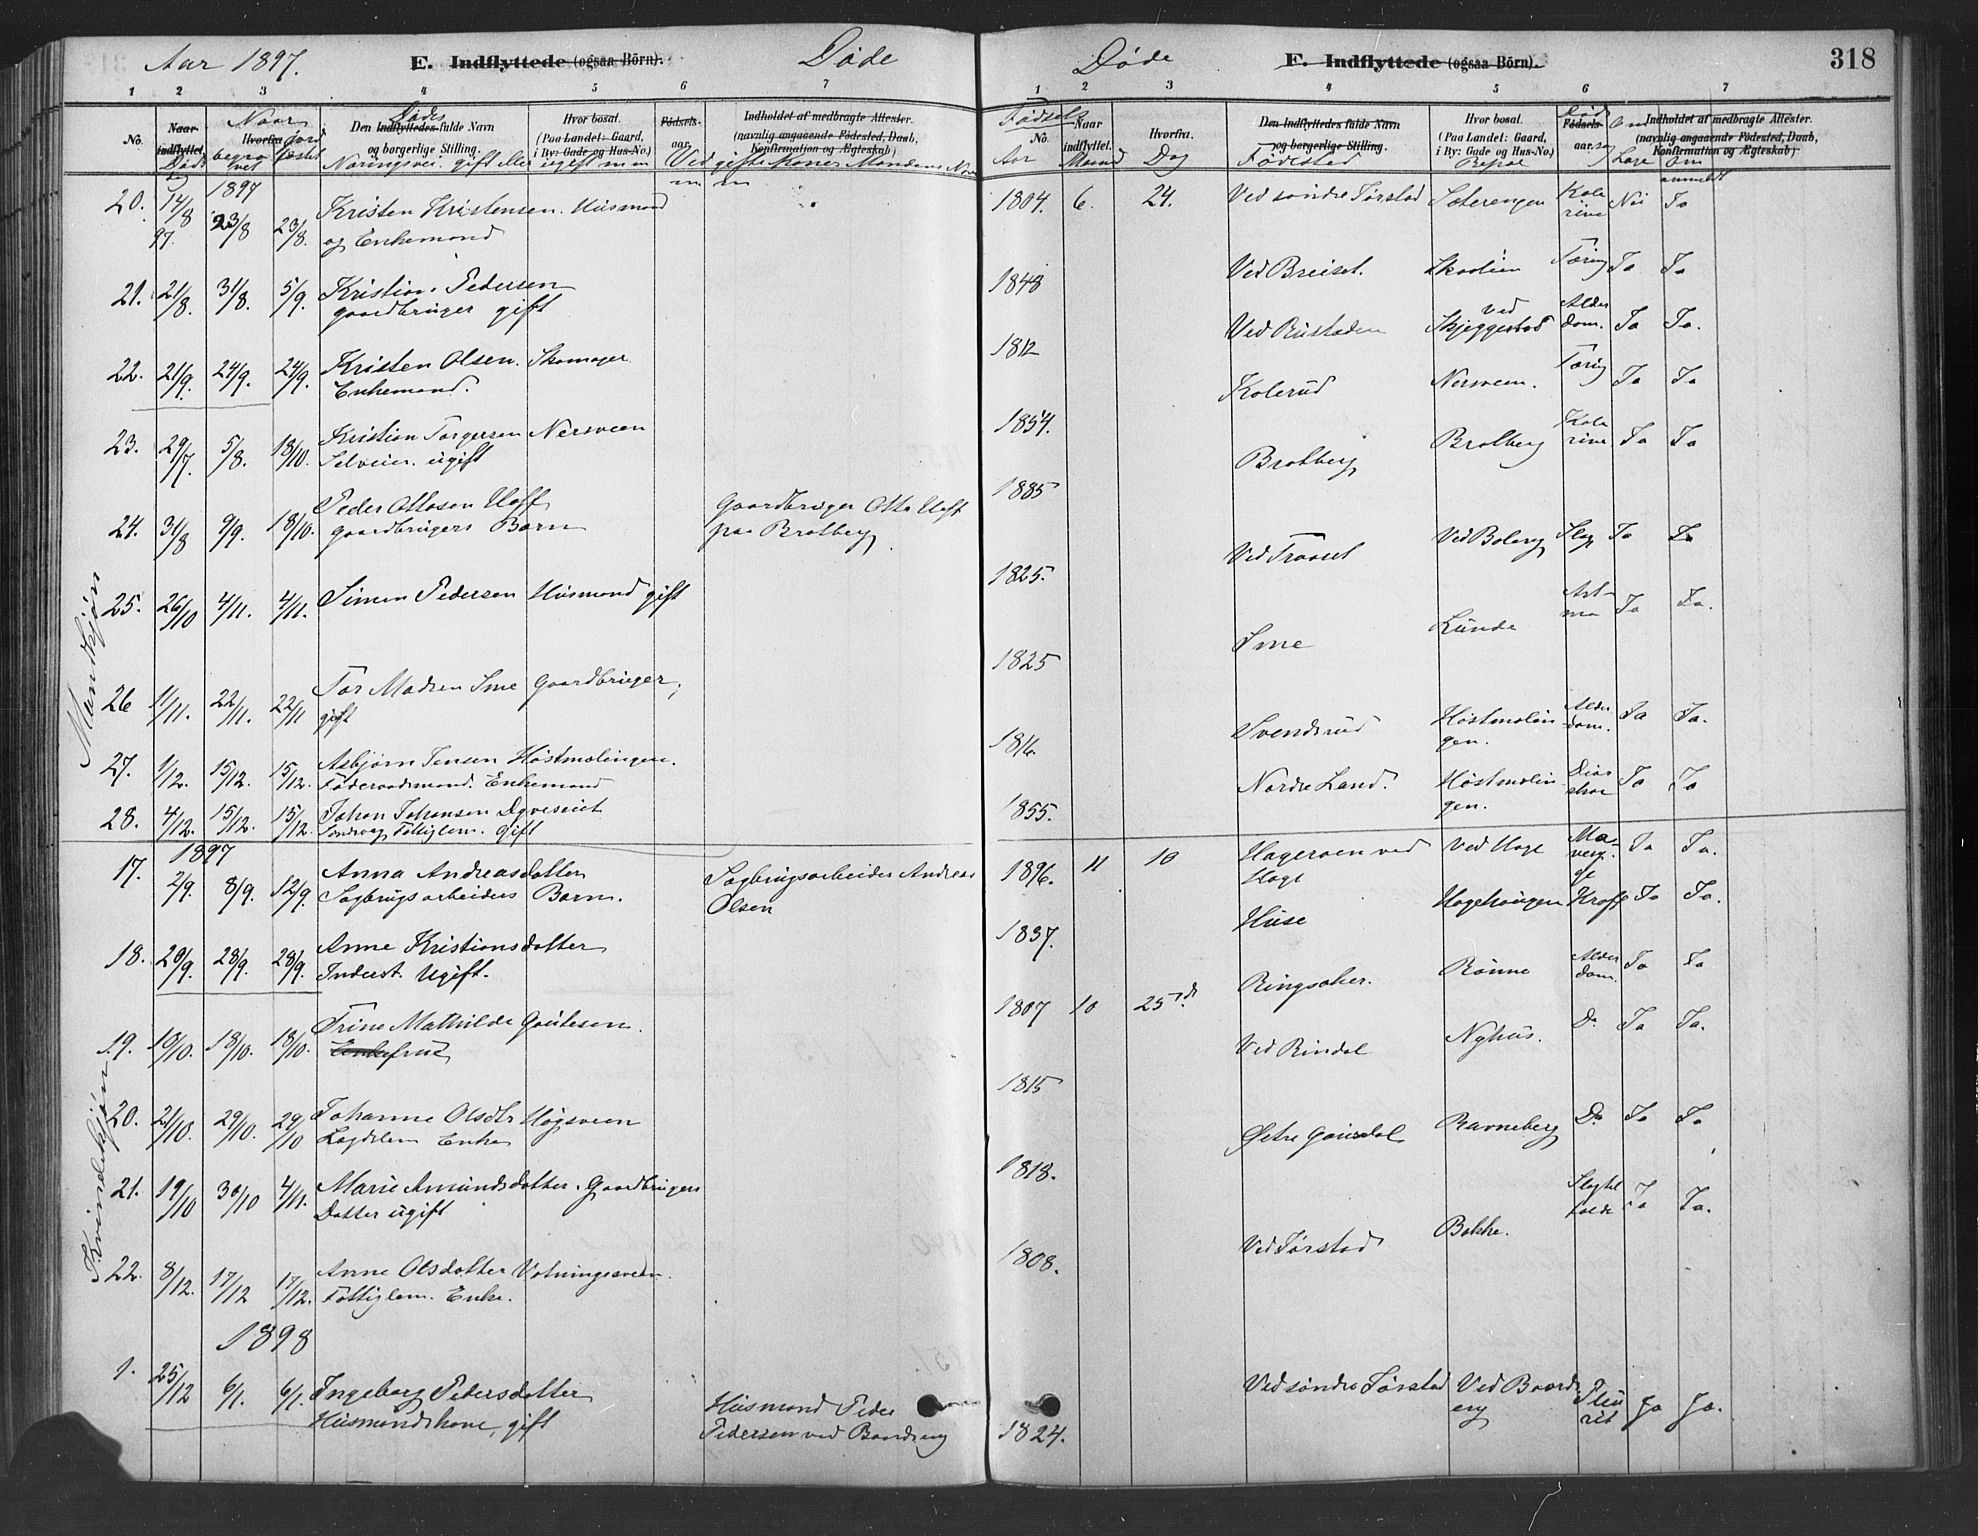 Aar 1897.
E. Indflyttede (ogsaa Börn).
Døde
1 2 3 4 5 6 7
No.
Naar indflyttet.
Døds
Naar
Hvorfra
jord
begra
vet
fæstet
Døds
Den Indflyttedes fulde Navn
og borgerlige Stilling.
Næringsvei. gift eller ugift m m
Hvor bosat.
(Paa Landet: Gaard,
i By: Gade og Hus-No.)
Fødsels-
aar.
Indholdet af medbragte Attester.
(navnlig angaaende Födested, Daab,
Konfirmation og Ægteskab)
Ved gifte Koner Mandens Navn
m m
Mandkjøn
1897
20. 14/8 97. 23/8 23/8. Kristen Kristensen. Husmand
og Enkemand
21. 21/8. 31/8. 5/9. Kristian Pedersen
gaardbruger gift
22. 21/9. 24/9. 24/9. Kristen Olsen. Skomager
Enkemand.
23. 29/7. 5/8. 18/10. Kristian Torgersen Nersveen
Selveier. ugift
24. 31/8 9/9. 18/10. Peder Ottosen Hoff
gaardbrugers Barn
Gaardbruger Otto Hoff
paa Brotberg
25. 26/10 4/11. 4/11. Simen Pedersen Husmand gift
26 11/11. 22/11. 22/11 Tor Madsen Sme Gaardbruger,
gift
27. 1/12. 15/12. 15/12. Asbjørn Jensen Høstmælingen.
Føderaadsmand. Enkemand
28. 4/12. 15/12. 15/12. Johan Johansen
Fattiglem. Gift
Kvindekjøn
1897
17. 2/9. 8/9. 12/9. Anna Andreasdatter
Sagbrugsarbeiders Barn.
Sagbrugsarbeider Andreas
Olsen
18. 20/9. 28/9. 28/9. Anne Kristiansdatter
Inderst. Ugift.
19. 10/10. 18/10. 18/10. Trine Mathilde Gautesen.
20. 21/10. 29/10. 29/10 Johanne Olsdtr Høgsveen
Lægdslem Enke
21. 19/10 30/10 4/11. Marie Amundsdatter. Gaardbrugers
Datter ugift
22. 8/12. 17/12 17/12. Anne Olsdatter Vatningsveen.
Fattiglem. Enke.
1898
1. 25/12 6/1. 6/1. Ingeborg Pedersdatter
Husmandskone, gift
Husmand Peder
Pedersen ved Baardseng
Døde
E. Indflyttede (ogsaa Börn).
318
1 2 3 4 5 6 7
Fødsels
No.
Aar
Naar
indflyttet.
Maaned
Hvorfra.
Dag
Den Indflyttedes fulde Navn
og borgerlige Stilling.
Fødested
Hvor bosat.
(Paa Landet: Gaard,
i By: Gade og Hus-No.)
Bopæl
Døds
Fødsels-
aar.
Om
Læge
Indholdet af medbragte Attester.
(navnlig angaaende Födested, Daab,
Konfirmation og Ægteskab)
Om
anmeldt
1804. 6. 24. Ved søndre Førstad Sæterengen Kole
rine Nei Ja
1848 Ved Breiset. Skaslien Tæring Ja Ja
1812 Ved Rustaden ved
Skjeggestad Alder
dom. Ja Ja.
1854. Kolerud Nersveen. Tæring Ja Ja
1885 Brotberg Brotberg Kole
rine Ja Ja
1825. Ved Traaset Ved Boleng Slag Ja Ja
1825 Sme Lunde Ast
ma Ja Ja.
1816. Svendsrud Høstmælin
gen. Alder
dom. Ja Ja.
1855. Nordre Land. Høstmælin
gen. Ja Ja
1896. 11 10 Hageroen ved
Hage ved Hage Ja Ja.
1837. Huse Hagehaugen Kræft Ja Ja.
1807 10 25de Ringsaker. Rønne Alder
dom. Ja Ja
1815 Ved Rindal Nyhus. Do Ja Ja.
1818. Østre Gausdal Ravneberg Do Ja Ja
1808. Ved Førstad Bakke. Slagtil
fælde Ja Ja.
1824. Ved søndre Førstad Ved Baards
eng Pleu
rit Ja Ja.